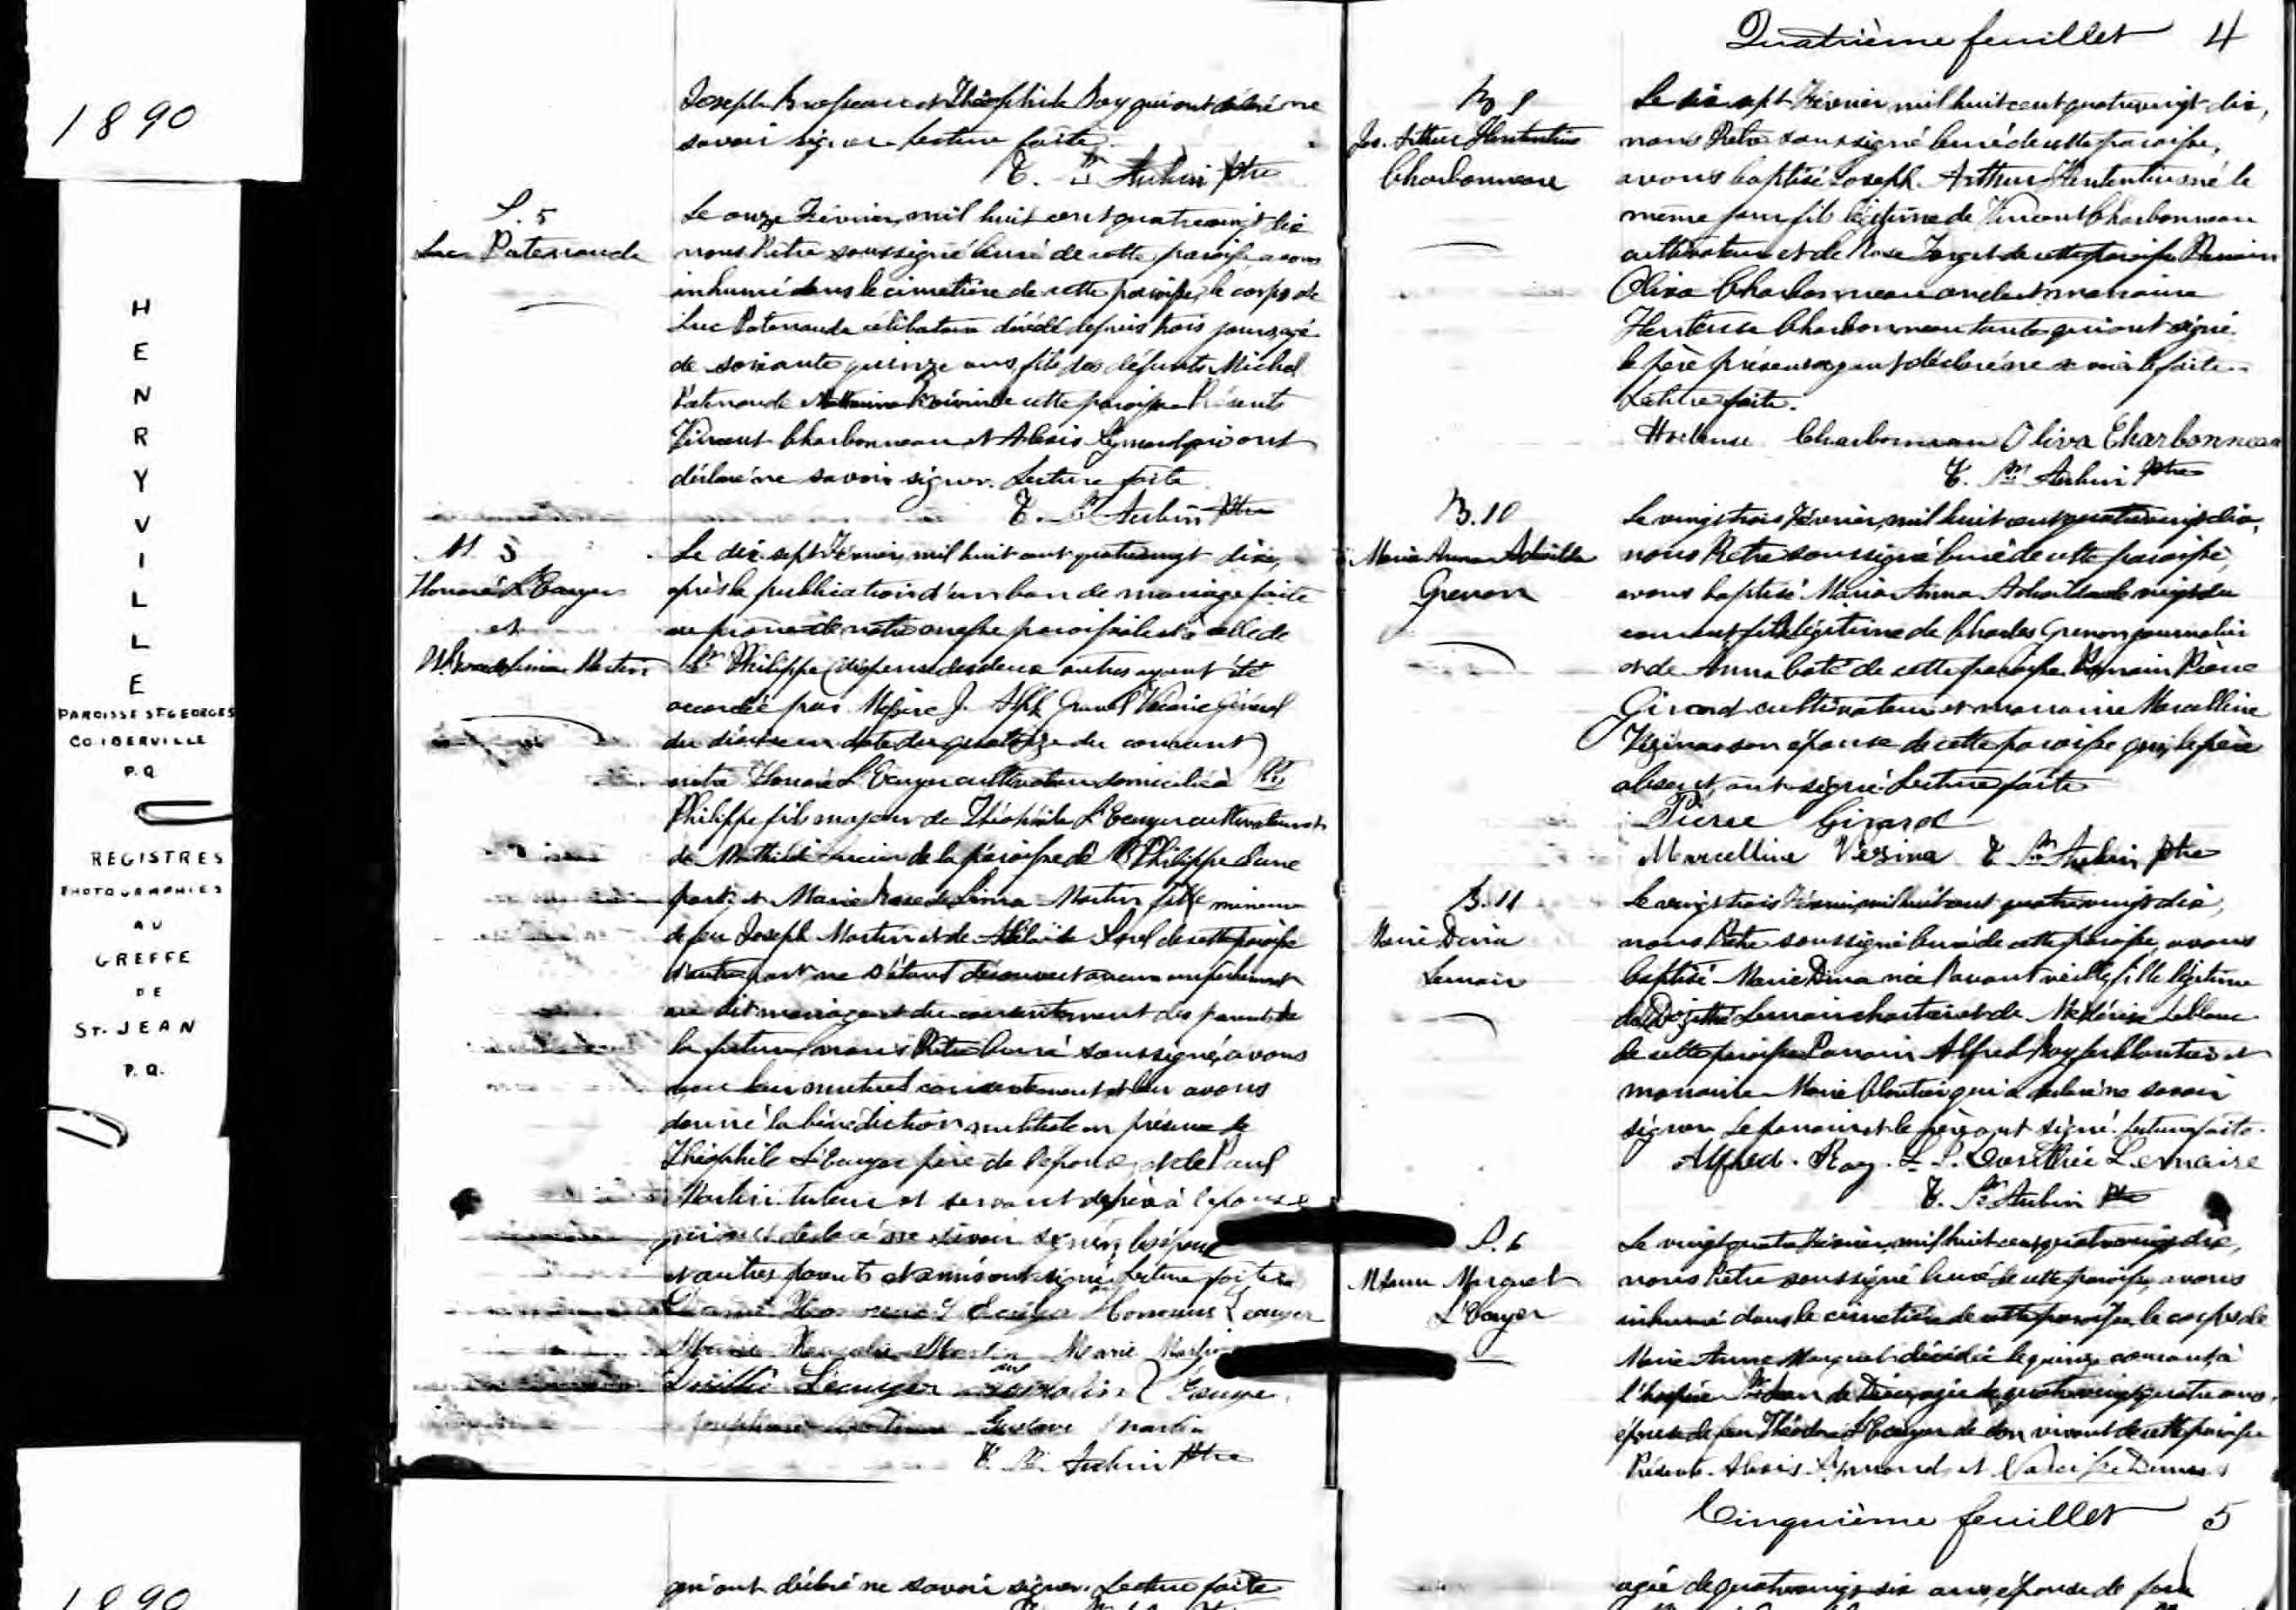 1890
HENRYVILLE
PAROISSE ST GEORGES
CO. IBERVILLE
P.Q.
REGISTRES
PHOTOGRAPHIES
AU
GREFFE
DE
ST. JEAN
P.Q.
1890
Joseph et Théophile Roy qui ont déclaré ne
savoir signer. Lecture faite.
T. St Aubin Ptre
S. 5
Luc Patenaude
Le onze Février, mil huit cent quatrevingt dix
nous Prêtre soussigné Curé de cette paroisse, avons
inhumé dans le cimetière de cette paroisse, le corps de
Luc Patenaude célibataire décédé depuis trois jours, agé
de soixante quinze ans fils des défunts Michel
Patenaude de cette paroisse Présents
Vincent Charbonneau et Alexis qui ont
déclaré ne savoir signer. Lecture faite
T. St Aubin Ptre
M. 3
Honoré L'Ecuyer
et
Martin
Le dix sept Février, mil huit cent quatrevingt dix,
après la publication d'un ban de mariage faite
au prône de notre messe paroissiale et à celle de
St Philippe (dispense des deux autres ayant été
accordée par Messire J. Alph Gravel Vicaire Général
du diocèse en date du quatorze du courant)
entre Honoré L'Ecuyer cultivateur domicilié à St
Philippe fils majeur de Théophile L'Ecuyer cultivateur et
de de la paroisse de St Philippe d'une
part; et Marie Rose de Lima Martin fille mineure
de feu Joseph Martin et de Adélaïde de cette paroisse
d'autre part ne s'étant découvert aucun empêchement
au dit mariage et du consentement des parents de
la future, nous Prêtre Curé soussigné, avons
reçu leur mutuel consentement et leur avons
donné la bénédiction nuptiale en présence de
Théophile L'Ecuyer père de l'époux, et de Paul
Martin tuteur et servant de père à l'épouse
qui ont déclaré ne savoir signer, les époux
et autres parents et amis ont signé. Lecture faite
Honorius Lecuyer
Marie Martin Marie Martin
Lécuyer
Gustave Martin
T. St Aubin Ptre
qui ont déclaré ne savoir signer. Lecture faite
Quatrième feuillet 4
B 9
Jos. Arthur
Charbonneau
Le dix sept Février, mil huit cent quatrevingt-dix,
nous Prêtre soussigné Curé de cette paroisse,
avons baptisé Joseph Arthur né le
même jour fils légitime de Vincent Charbonneau
cultivateur et de Rose Forget de cette paroisse Parrain
Oliva Charbonneau oncle et marraine
Hortense Charbonneau tante qui ont signé.
le père présent ayant déclaré ne savoir le faire.
Lecture faite.
Hortense Charbonneau Oliva Charbonneau
T. St Aubin Ptre
B. 10
Marie Anna
Grenon
Le vingt trois Février, mil huit cent quatrevingt dix,
nous Prêtre soussigné Curé de cette paroisse,
avons baptisé Marie Anna née le vingt du
courant fille légitime de Charles Grenon journalier
et de Anna Coté de cette paroisse Parrain Pierre
Girard cultivateur et marraine Marcelline
Vezina son épouse de cette paroisse qui, le père
absent, ont signé. Lecture faite
Pierre Girard
Marcelline Vezina T. St Aubin Ptre
B. 11
Marie Dina
Lemaire
Le vingt trois Février, mil huit cent quatrevingt dix,
nous Prêtre soussigné Curé de cette paroisse, avons
baptisé Marie Dina née l'avant veille fille légitime
de Lemaire et de Leblanc
de cette paroisse Parrain Alfred Roy et
marraine Marie Cloutier qui a déclaré ne savoir
signer. Le parrain et le père ont signé. Lecture faite.
Alfred. Roy. L. P. Lemaire
T. St Aubin Ptre
S. 6
M. Anne Marquet
L'Ecuyer
Le vingt quatre Février, mil huit cent quatrevingt dix,
nous Prêtre soussigné Curé de cette paroisse, avons
inhumé dans le cimetière de cette paroisse, le corps de
Marie Anne Marquet décédée le quinze courant, à
l'hospice St Jean de Dieu, agée de quatrevingt quatre ans,
épouse de feu Théodore L'Ecuyer de son vivant de cette paroisse
Présents. Alexis et Narcisse
Cinquième feuillet 5
agée de quatrevingt six ans, épouse de feu